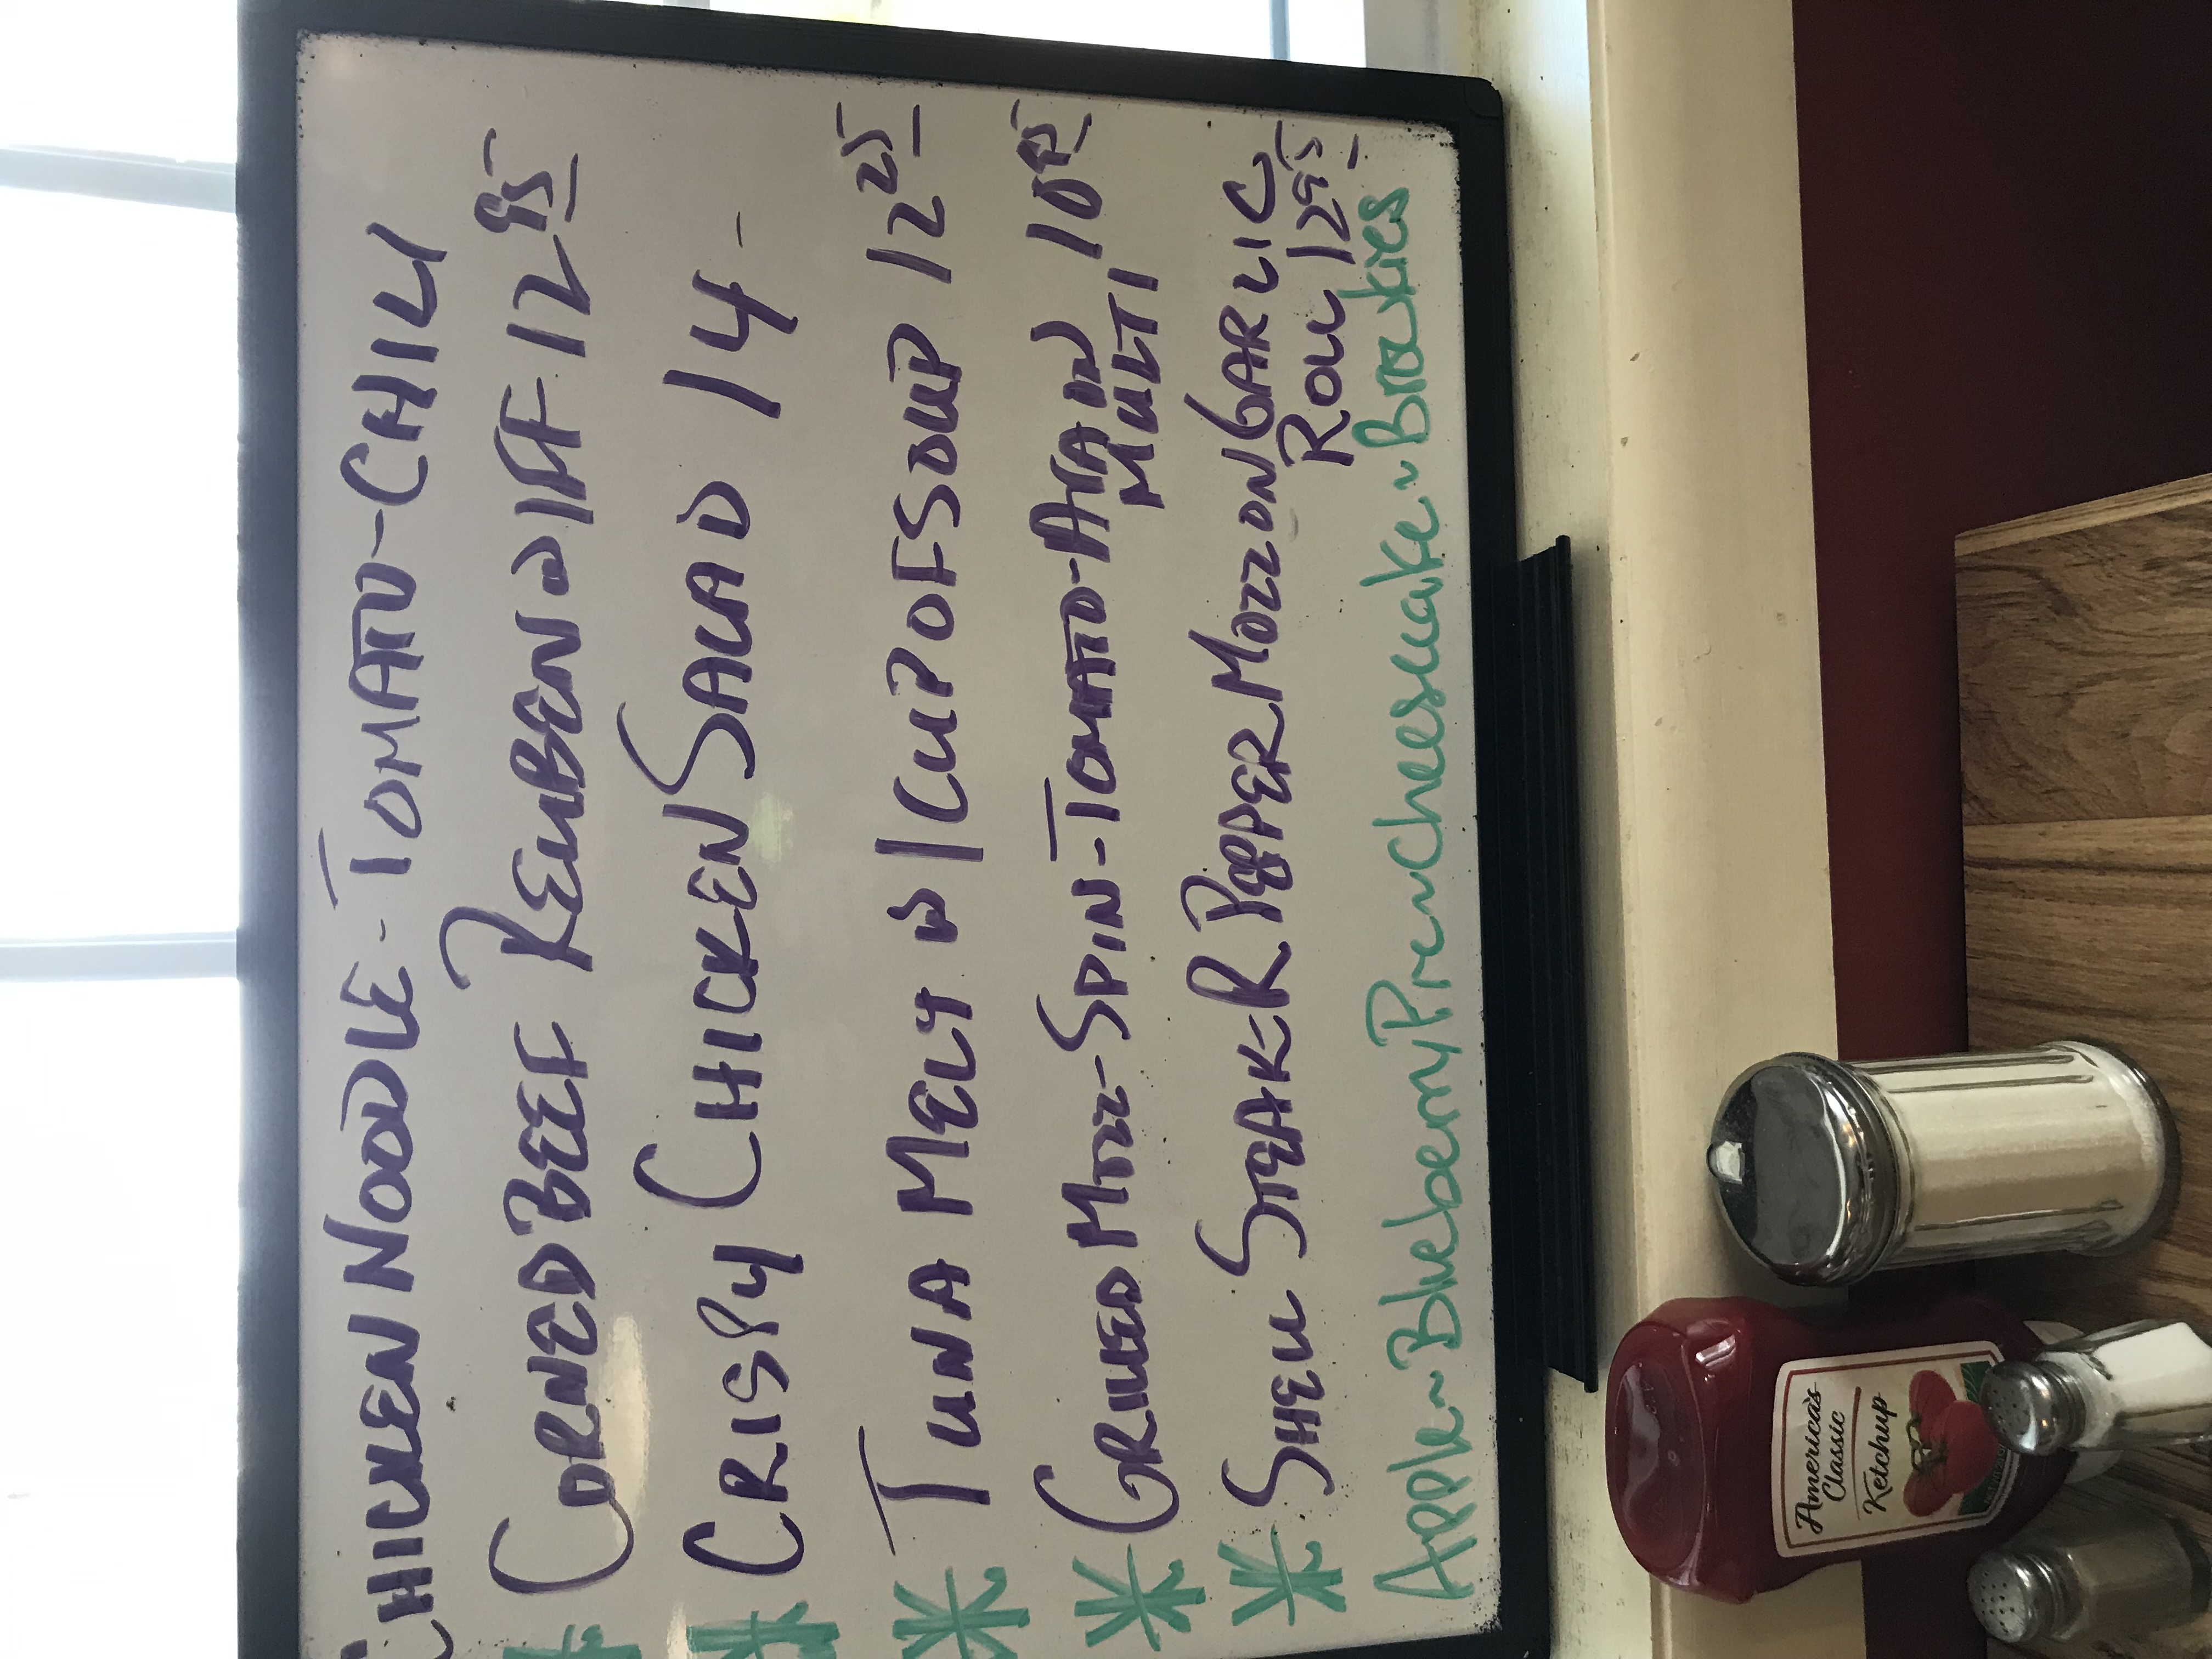 CHICKEN NOODLE - TOMATO - CHILI
* CORNED BEEF REUBEN W/FF 12 95
* CRISPY CHICKEN SALAD 14 -
* TUNA MELT W/CUP OF SOUP 12 25
* GRILLED MOZZ - SPIN - TOMATO - MULTI 10 95
* SHELL STEAK - R PEPPER MOZZ ON GARLIC
ROLL 12 95
Apple ~ Blueberry Pie ~ Cheesecake ~ Brownies
America's
Classic
Ketchup